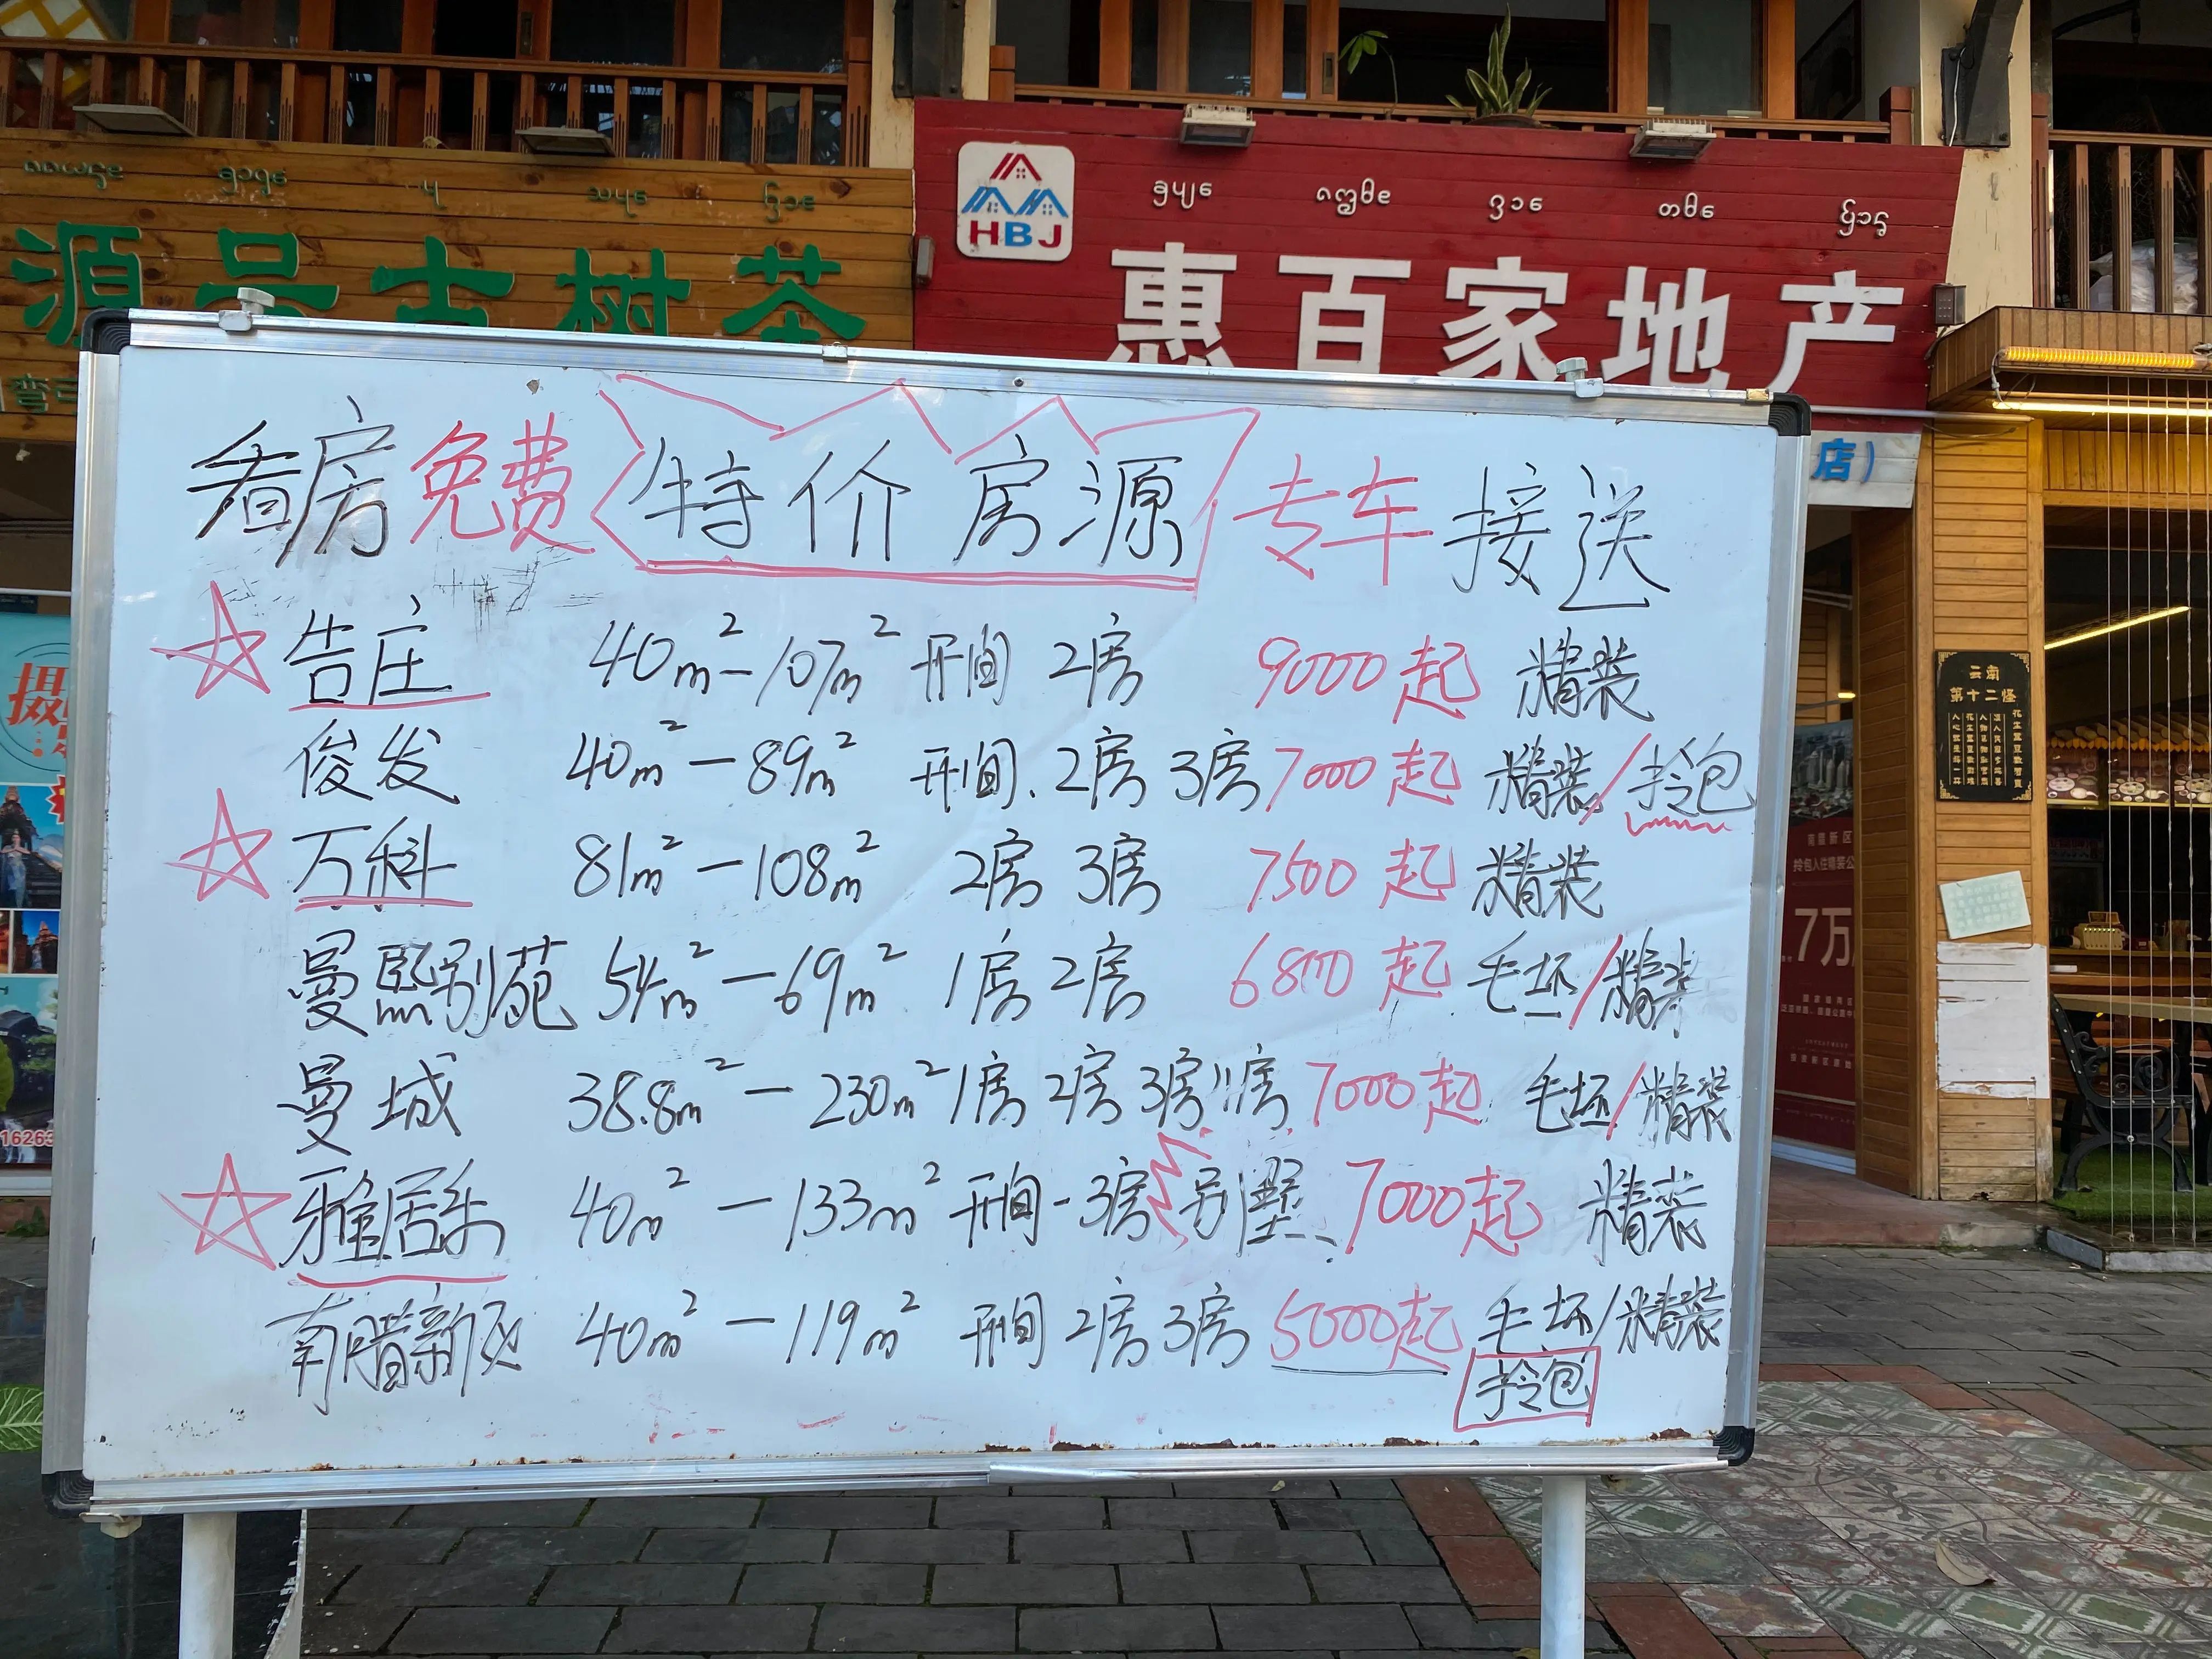 源号古树茶
HBJ
惠百家地产
店)
看房免费 特价房源 专车接送
告庄 40m²-107m² 开间 2房 9000起 精装
俊发 40m²-89m² 开间、2房 3房 7000起 精装/拎包
万科 81m²-108m² 2房 3房 7500起 精装
曼熙别苑 54m²-69m² 1房 2房 6800起 毛坯/精装
曼城 38.8m²-230m² 1房 2房 3房 11房 7000起 毛坯/精装
雅居乐 40m²-133m² 开间-3房 别墅 7000起 精装
南腊新区 40m²-119m² 开间 2房 3房 5000起 毛坯/精装
拎包
云南
第十二怪
7万
摄
16263